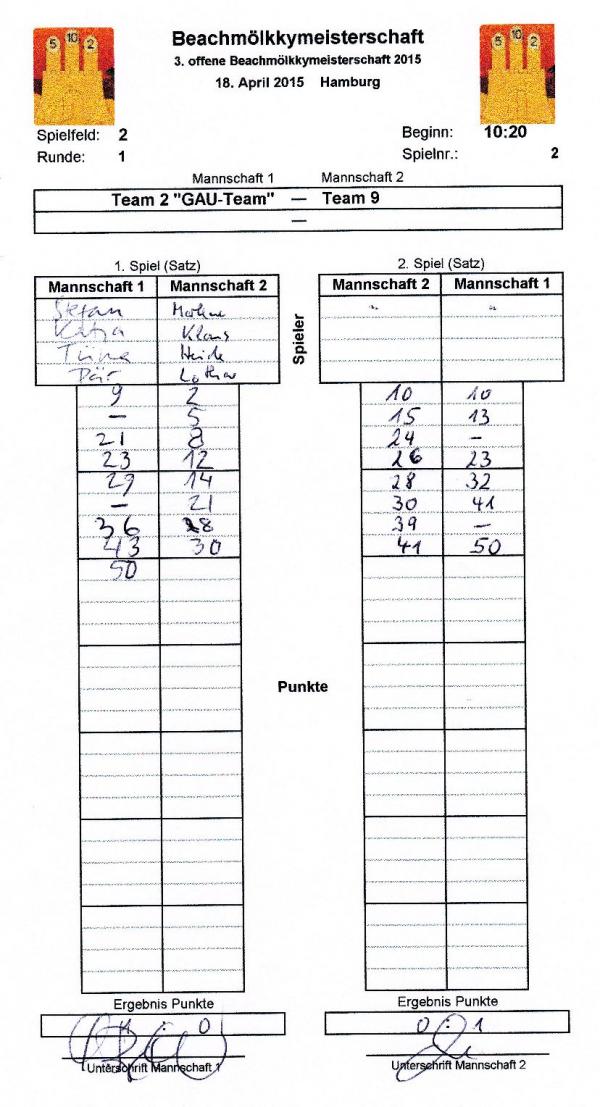 5 10 2
5 10 2
Beachmölkkymeisterschaft
3. offene Beachmölkkymeisterschaft 2015
18. April 2015 Hamburg
Spielfeld: 2
Beginn: 10:20
Runde: 1
Spielnr.: 2
Mannschaft 1 Mannschaft 2
Team 2 "GAU-Team" — Team 9
—
1. Spiel (Satz)
Mannschaft 1 Mannschaft 2
Stefan
Katja Klaus
Heide
Lothar
9 2
– 5
21 8
23 12
29 14
– 21
36 28
43 30
50
2. Spiel (Satz)
Mannschaft 2 Mannschaft 1
" "
10 10
15 13
24 –
26 23
28 32
30 41
39 –
41 50
Spieler
Punkte
Ergebnis Punkte
1 : 0
Unterschrift Mannschaft 1
Ergebnis Punkte
0 : 1
Unterschrift Mannschaft 2